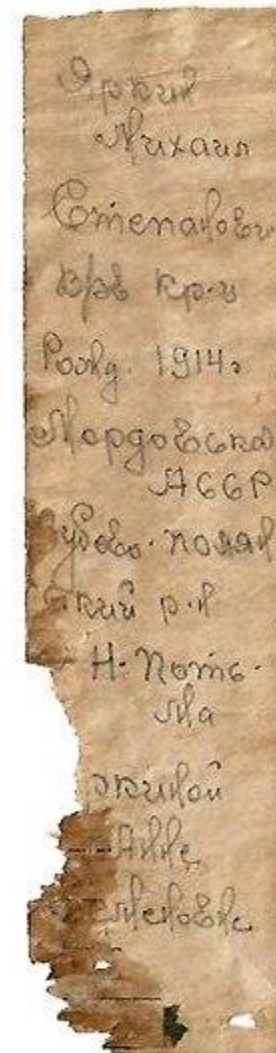 Яркин
Михаил
Степанович
кр-ц
Рожд. 1914г
Мордовска
АССР
Зубово-полян
ский р-н
Н-Поть-
ма
ркиной
Анне